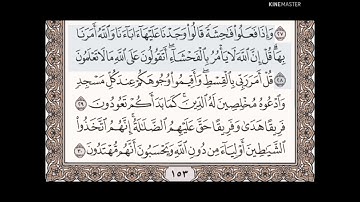 KINEMASTER
٢٧ وَإِذَا فَعَلُوا۟ فَٰحِشَةً قَالُوا۟ وَجَدْنَا عَلَيْهَآ ءَابَآءَنَا وَٱللَّهُ أَمَرَنَا
بِهَا ۗ قُلْ إِنَّ ٱللَّهَ لَا يَأْمُرُ بِٱلْفَحْشَآءِ ۖ أَتَقُولُونَ عَلَى ٱللَّهِ مَا لَا تَعْلَمُونَ
٢٨ قُلْ أَمَرَ رَبِّى بِٱلْقِسْطِ ۖ وَأَقِيمُوا۟ وُجُوهَكُمْ عِندَ كُلِّ مَسْجِدٍ
وَٱدْعُوهُ مُخْلِصِينَ لَهُ ٱلدِّينَ ۚ كَمَا بَدَأَكُمْ تَعُودُونَ ٢٩
فَرِيقًا هَدَىٰ وَفَرِيقًا حَقَّ عَلَيْهِمُ ٱلضَّلَٰلَةُ ۗ إِنَّهُمُ ٱتَّخَذُوا۟
ٱلشَّيَٰطِينَ أَوْلِيَآءَ مِن دُونِ ٱللَّهِ وَيَحْسَبُونَ أَنَّهُم مُّهْتَدُونَ ٣٠
١٥٣